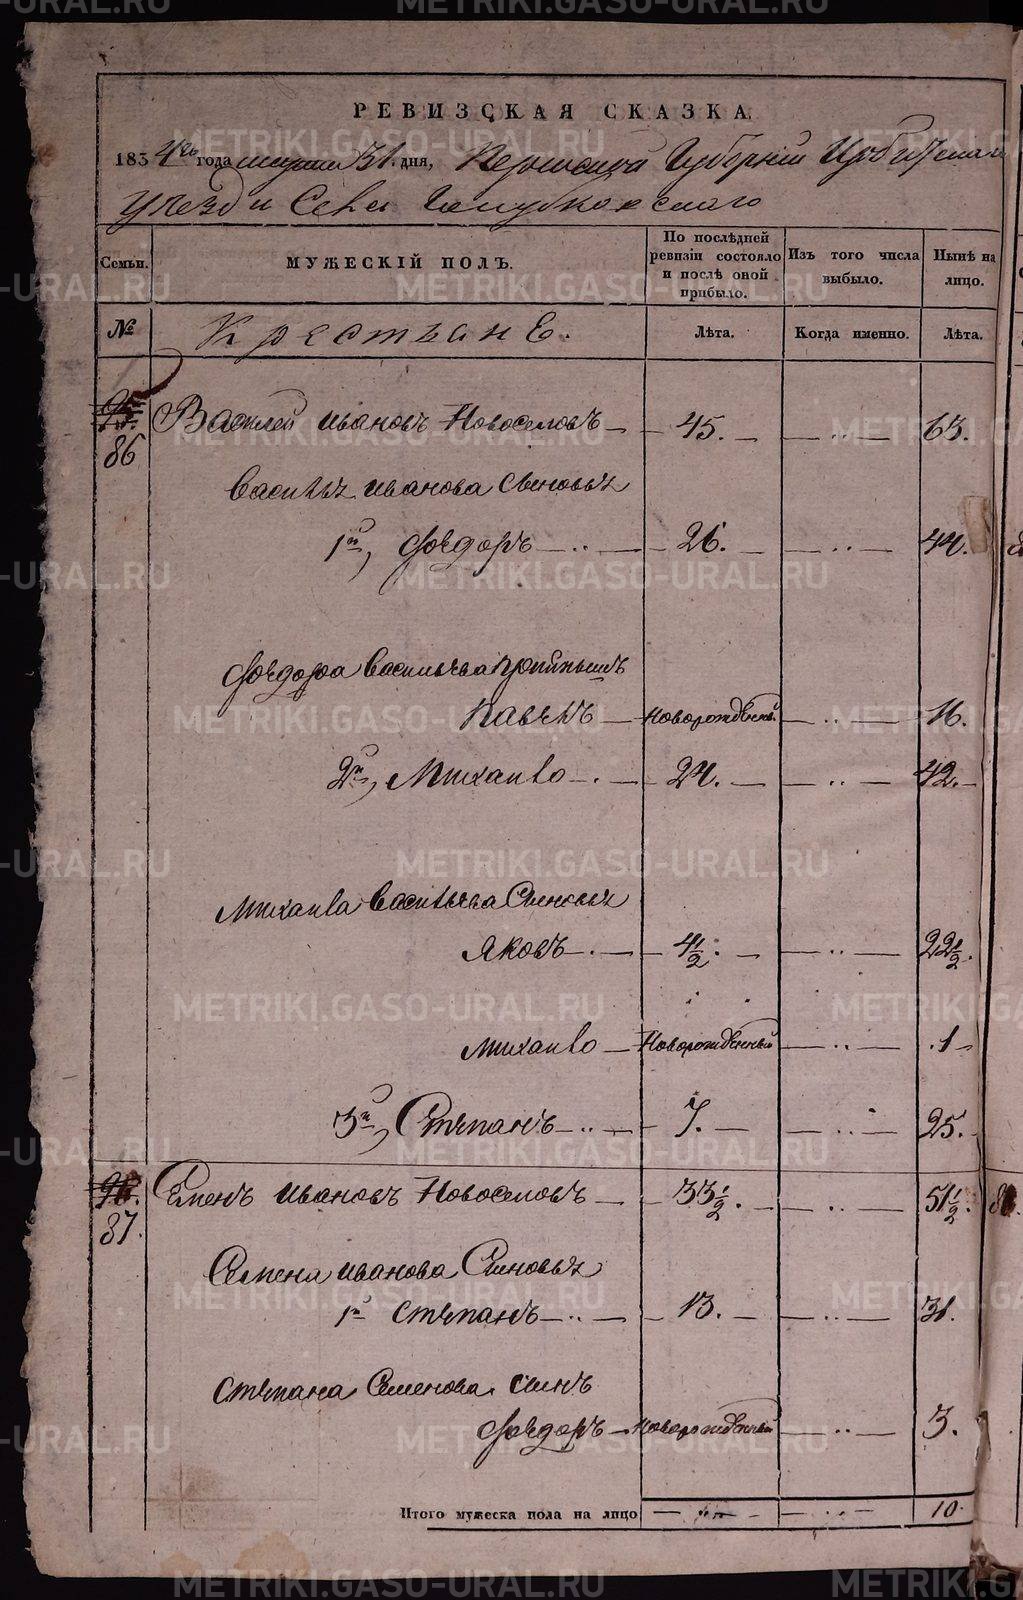 РЕВИЗСКАЯ СКАЗКА
1834го года марта 31. дня, Пермской Губернии Ирбитскаго
Уезда Села
Семьи. МУЖЕСКІЙ ПОЛЪ. По послѣдней ревизіи состояло и послѣ оной прибыло. Изъ того числа выбыло. Нынѣ на лицо.
№ Крестьяне. Лѣта. Когда именно. Лѣта.
95. 86 Василей Ивановъ Новоселовъ 45. 63.
Василья Иванова Сыновья
1й, Фёдоръ 26. 44.
Федора Васильева
Павелъ Новорожденный 16.
2й, Михайло 24. 42.
Михайла Васильева Сыновья
Яковъ 4½. 22½.
Михайло Новорожденный 1
3й, Степанъ 7. 25.
96. 87. Семенъ Ивановъ Новоселовъ 33½. 51½.
Семена Иванова Сыновья
1й Степанъ 13. 31.
Степана Семенова сынъ
Федоръ Новорожденный 3.
Итого мужеска пола на лицо 10.
METRIKI.GASO-URAL.RU